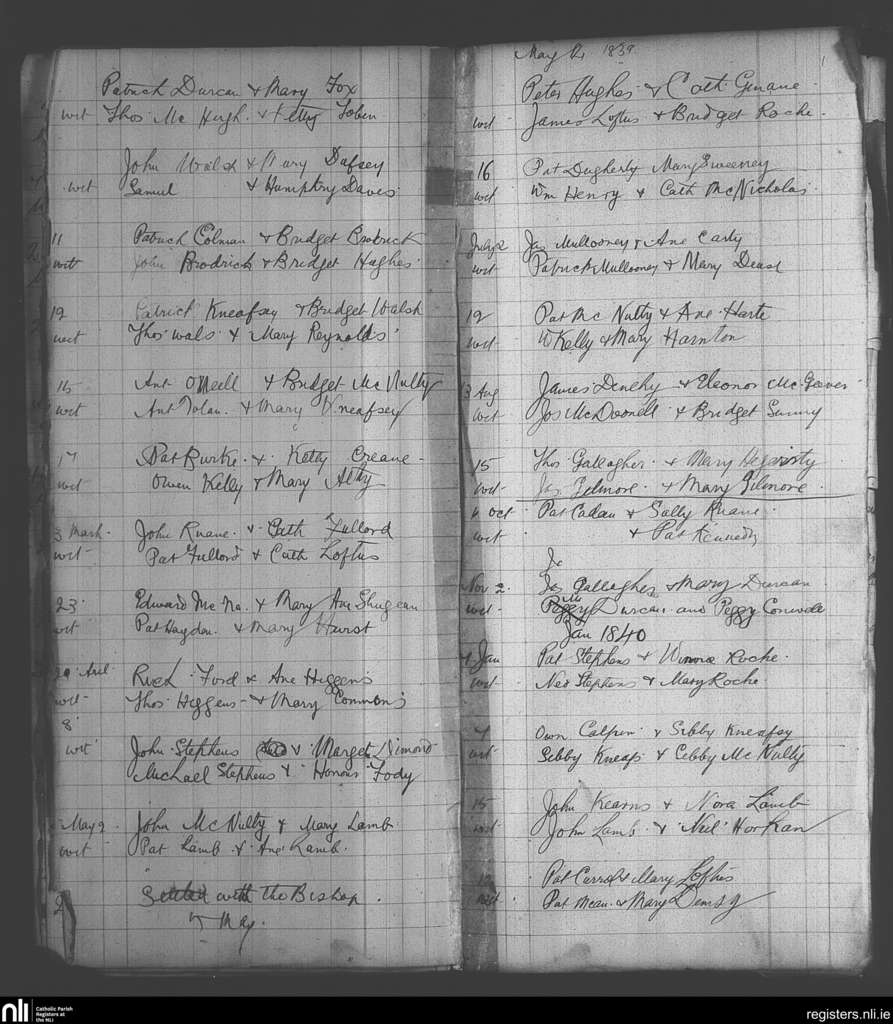 Patrick Durcan & Mary Fox
wit Thos Mc Hugh & Kitty Tobin
John Walsh & Mary
wit Samul & Humphry Davis
11 Patrick Colman & Bridget Brodrick
witt John Brodrick & Bridget Hughes
12 Patrick Kneafsy & Bridget Walsh
wit Thos Wals & Mary Reynolds
15 Ant ONeell & Bridget Mc Nulty
wit Ant Tolan & Mary Kneafsey
17 Pat Burke & Kitty Creane
wit Owen Kelly & Mary
3 March John Ruane & Cath Fullord
wit Pat Fullord & Cath Loftus
23 Edward Mc & Mary Ane
wit Pat Haydon & Mary Hurst
Aril Rich Ford & Ane Higgens
wit Thos Higgens & Mary Commons
8
wit John Stephens & Marget Dimond
Michael Stephens & Honour Fody
May 2 John McNulty & Mary Lamb
wit Pat Lamb & Ane Lamb
Settled with the Bishop
May
May 12 1839
Peter Hughes & Cath
wit James Loftus & Bridget Roche
16 Pat Dugherty Mary Sweeney
wit Wm Henry & Cath McNicholas
July 2 Jas Mullooney & Ane Carty
wit Patrick Mullooney & Mary Dease
12 Pat Mc Nulty & Ane Harte
wit Kelly & Mary Harnton
3 Aug James Denehy & Eleonor
wit Jos McDonnell & Bridget
15 Thos Gallagher & Mary Hegarty
wit Jas Gilmore & Mary Gilmore
Oct Pat Cadan & Sally Ruane
wit & Pat Kennedy
Nov 2 Jas Gallagher & Mary Durcan
wit Durcan and Peggy
Jan 1840
4 Jan Pat Stephens & Winora Roche
wit Ned Stephens & Mary Roche
7 Own Calpin & Sibby Kneafsy
wit Sibby Kneafs & Cebby Mc Nulty
15 John Kearns & Nora Lamb
wit John Lamb & Neil Horkan
Pat Carrol & Mary Loftus
wit Pat Mean & Mary Demsy
nli
Catholic Parish
Registers at
the NLI
registers.nli.ie